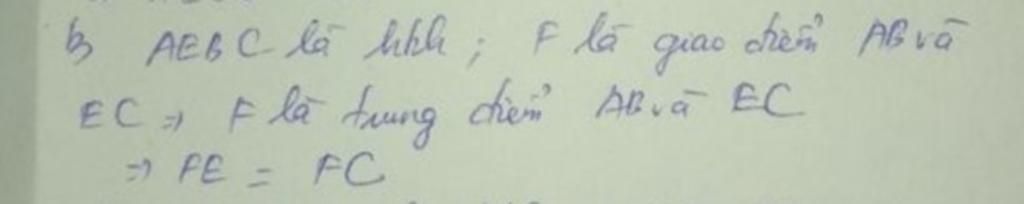 b, AEBC là hbh ; F là giao điểm AB và
EC => F là trung điểm AB và EC
=> FE = FC